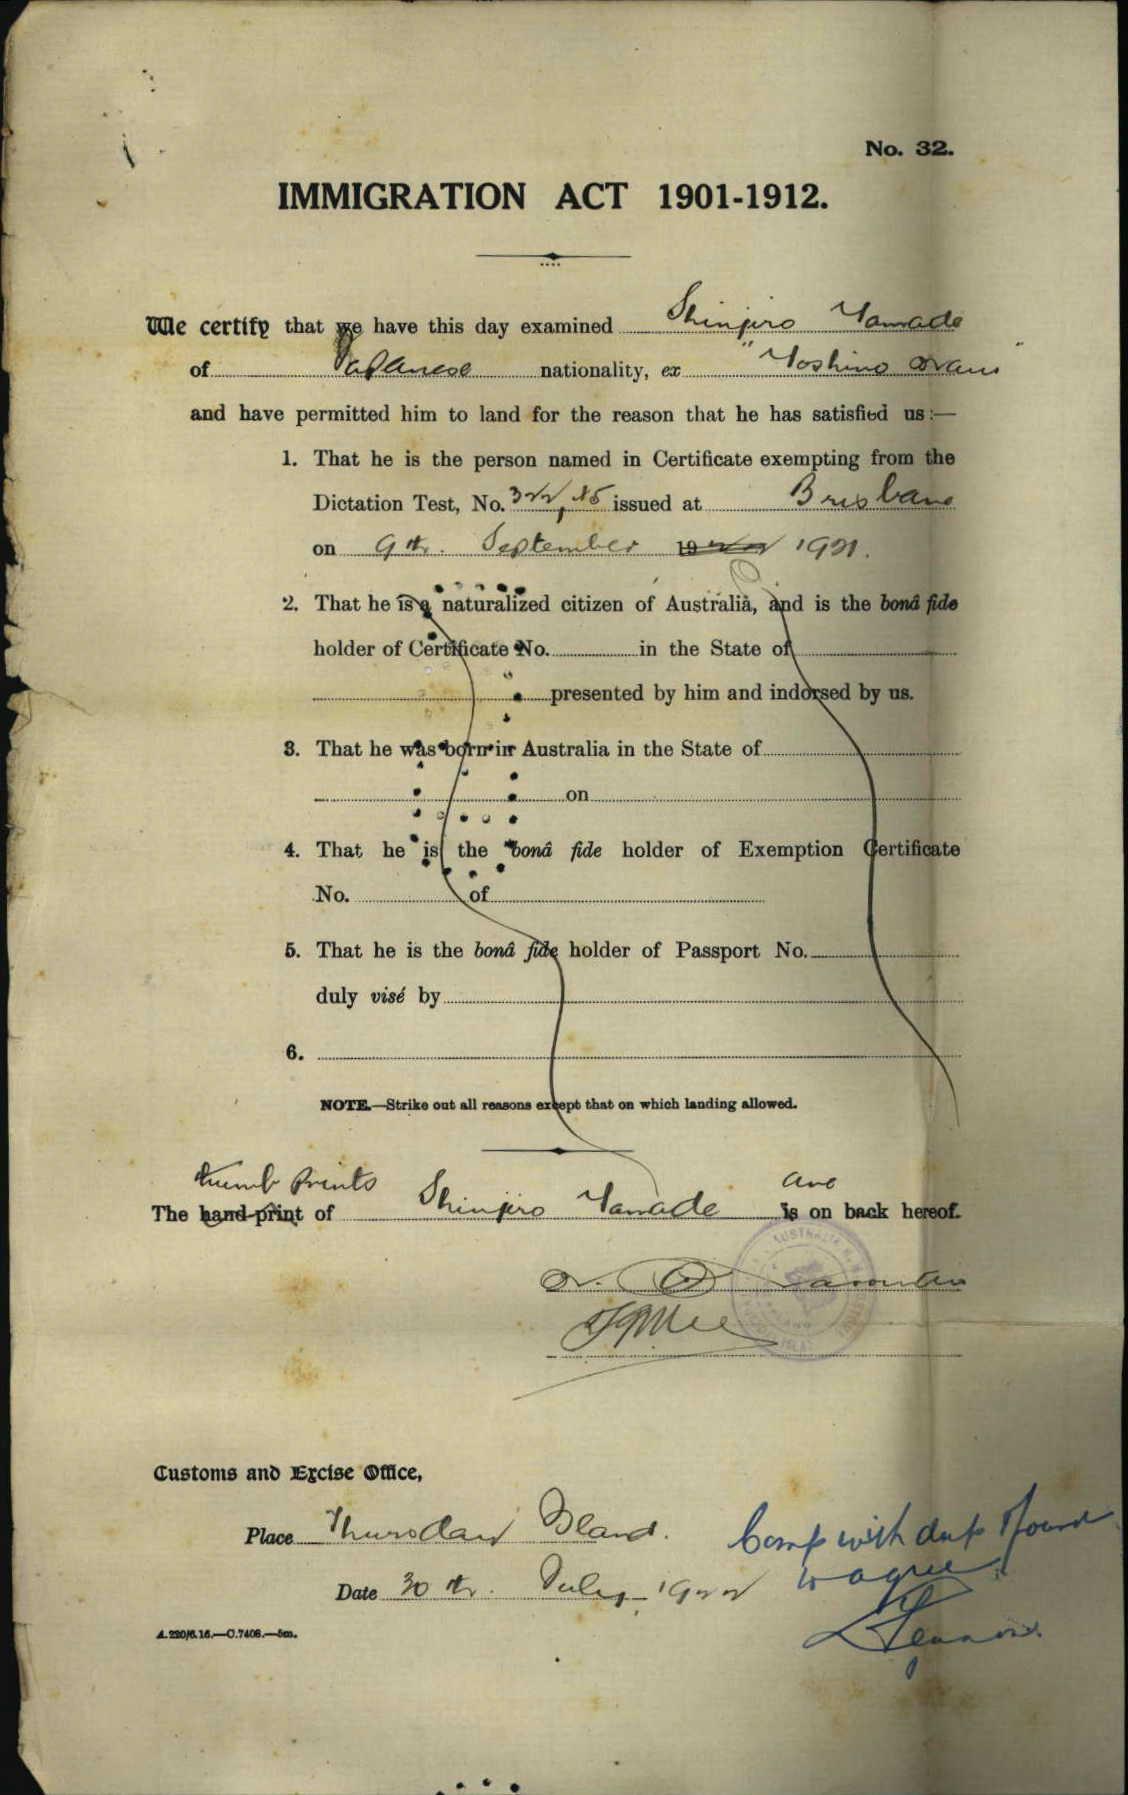 No. 32.
IMMIGRATION ACT 1901-1912.
We certify that we have this day examined Shinjiro Yamade
of Japanese nationality, ex "Yoshino Maru"
and have permitted him to land for the reason that he has satisfied us:—
1. That he is the person named in Certificate exempting from the
Dictation Test, No. 322/85 issued at Brisbane
on 9th. September 19 1921.
2. That he is a naturalized citizen of Australia, and is the bonâ fide
holder of Certificate No. in the State of
presented by him and indorsed by us.
3. That he was born in Australia in the State of
on
4. That he is the bonâ fide holder of Exemption Certificate
No. of
5. That he is the bonâ fide holder of Passport No.
duly visé by
6.
NOTE.—Strike out all reasons except that on which landing allowed.
thumb prints are
The hand-print of Shinjiro Yamade is on back hereof.
Customs and Excise Office,
Place Thursday Island.
Date 30th. July 1922
Comp with dup & found
to agree
A.220/6.16.—C.7408.—5m.